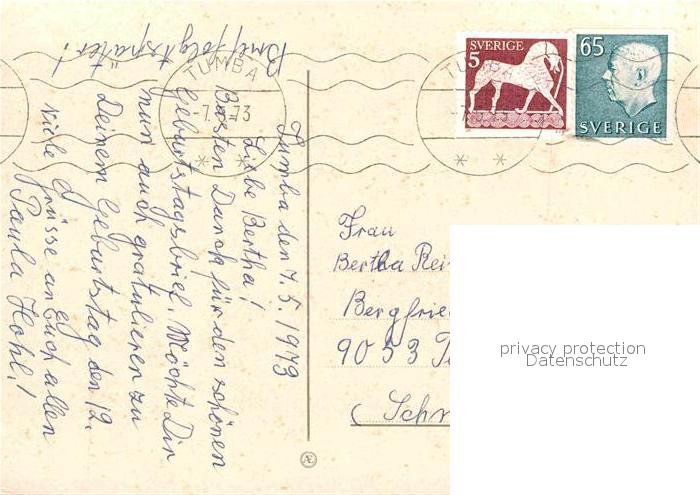 SVERIGE
5
65
SVERIGE
TUMBA
7.5.73
TUMBA
Tumba den 7.5.1973
Liebe Bertha!
Besten Danck für den schönen
Geburtstagsbrief. Möchte Dir
nun auch gratulieren zu
Deinem Geburtstag den 12.
viele Grüsse an Euch allen
Paula Hohl!
Brief folgt später!
Frau
Bertha Rei
Bergfrie
9053 Te
(Schw
privacy protection
Datenschutz
Æ